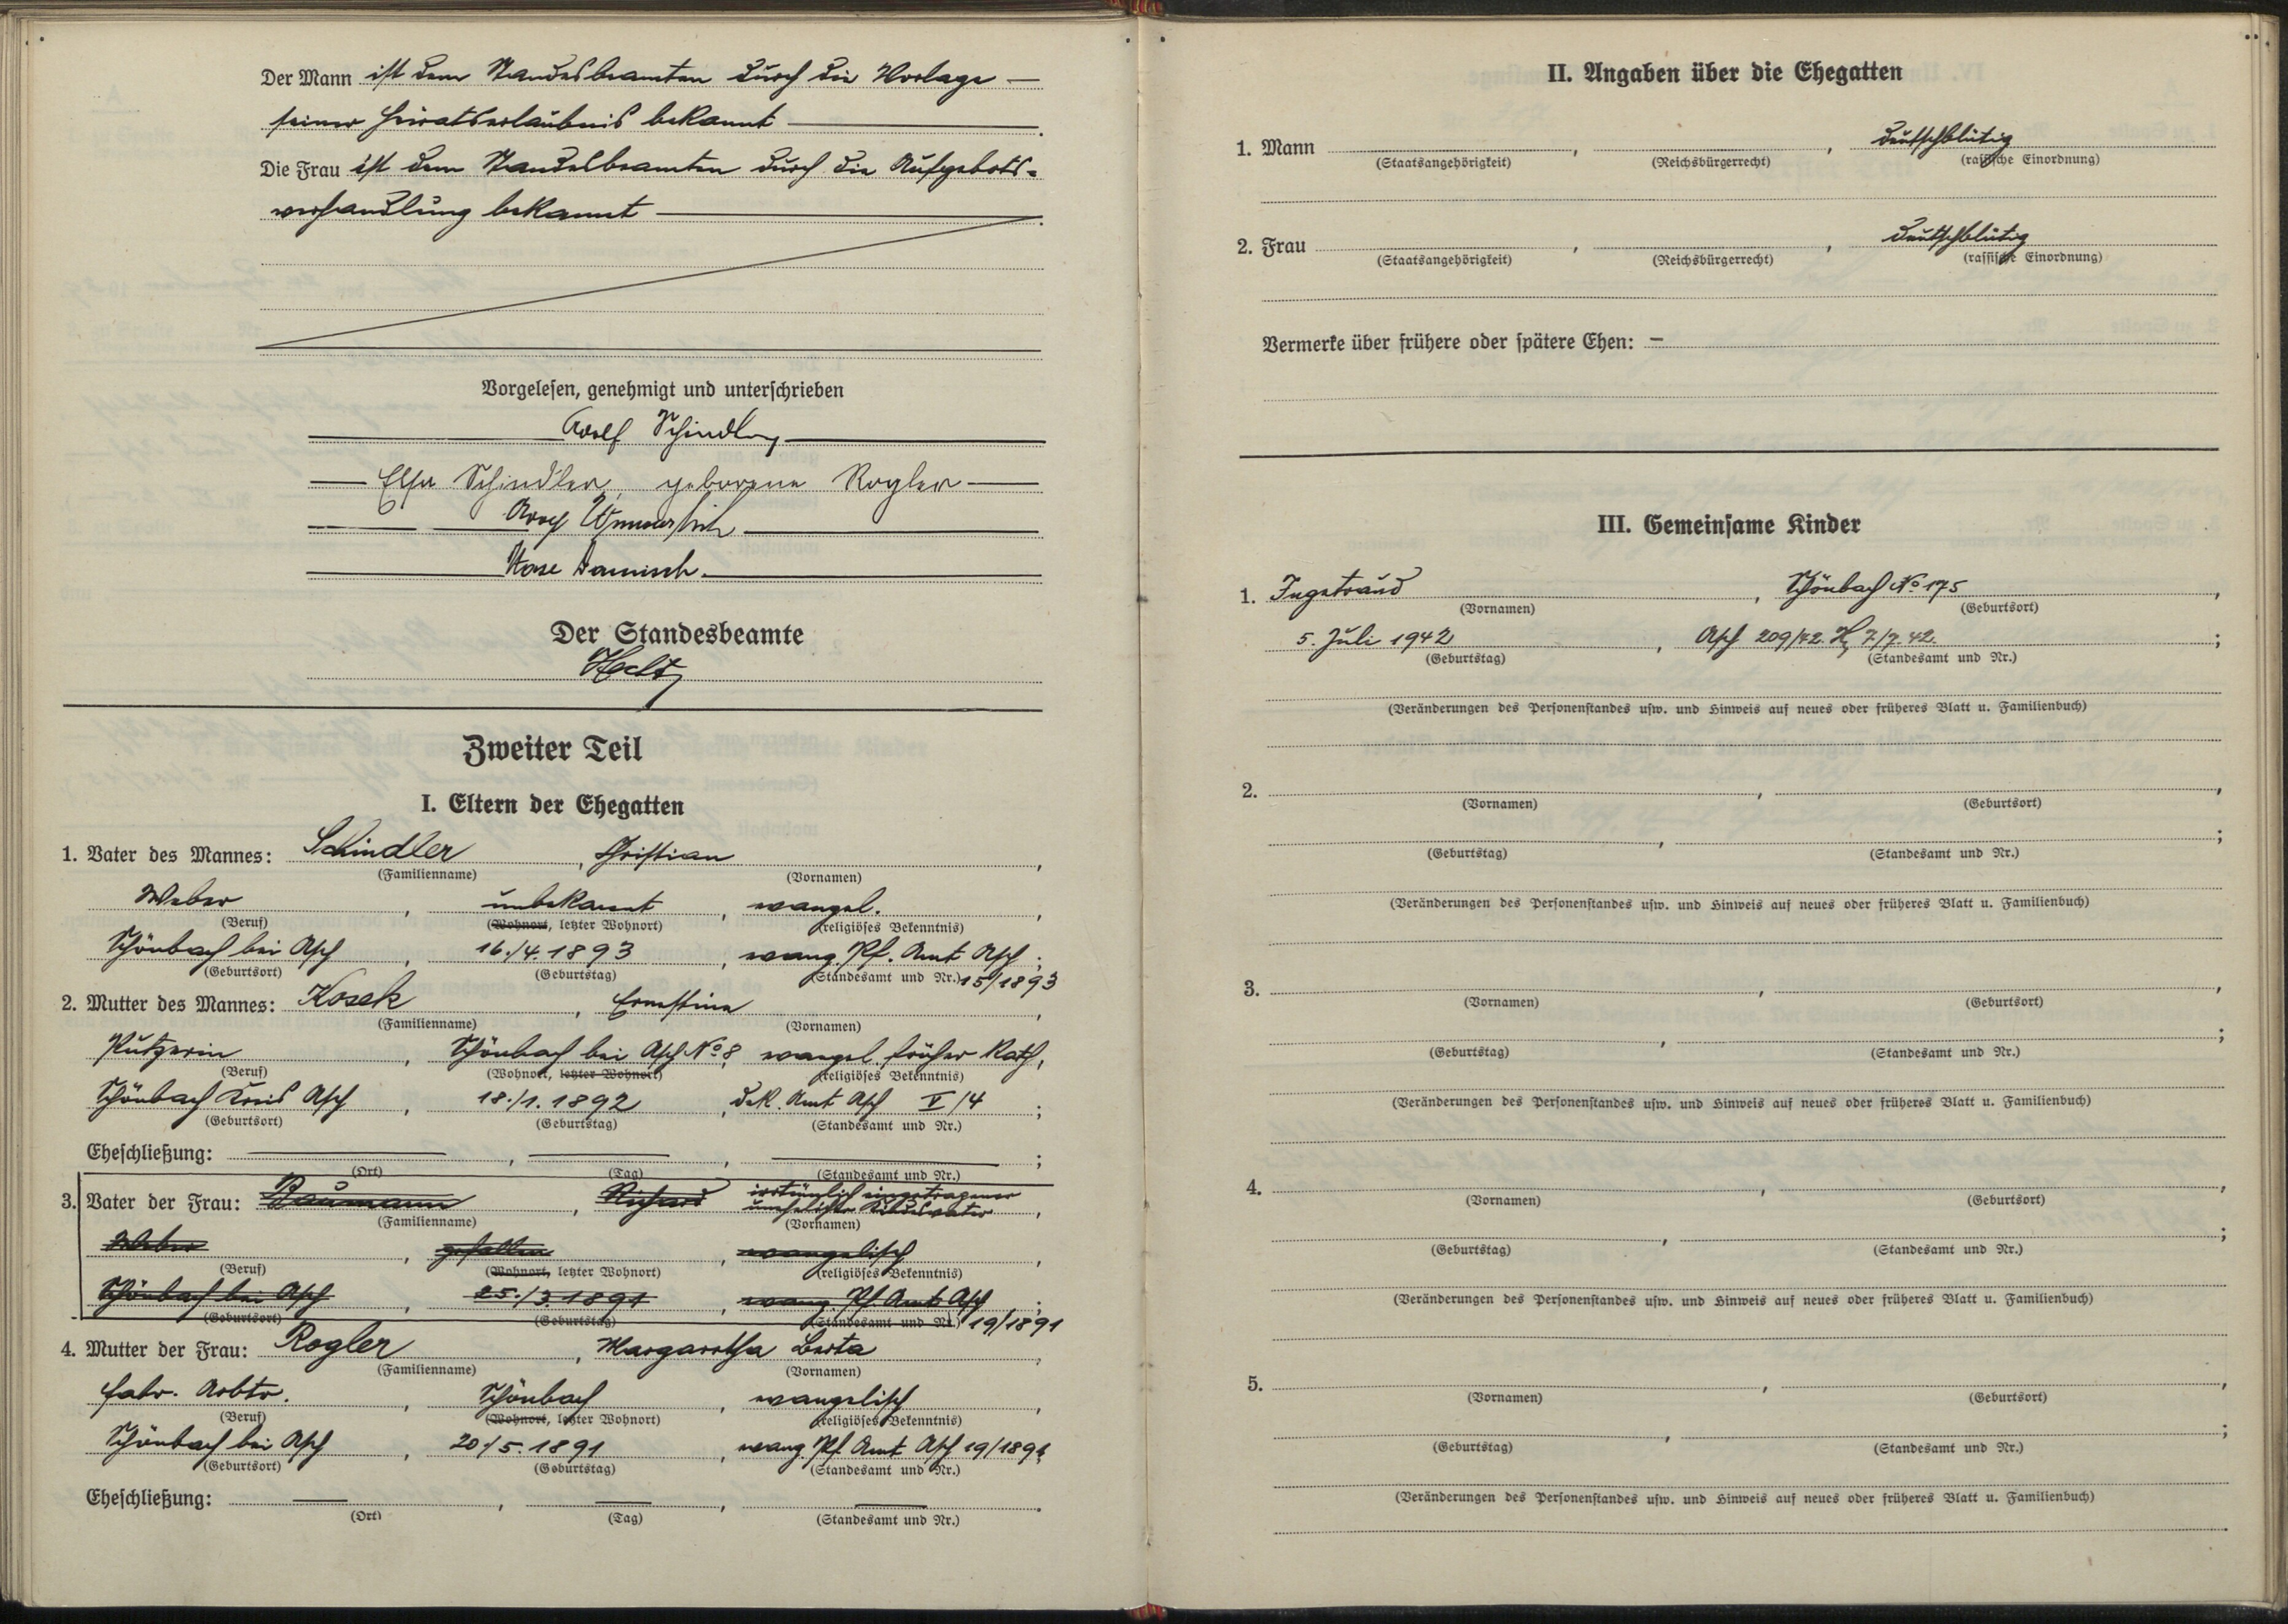 Der Mann ist dem Standesbeamten durch die Vorlage —
seiner Heiratserlaubnis bekannt —.
Die Frau ist dem Standesbeamten durch die Aufgebots-
verhandlung bekannt —.
Vorgelesen, genehmigt und unterschrieben
Adolf Schindler
Elsa Schindler, geborene Rogler
Adolf
Damisch
Der Standesbeamte
Zweiter Teil
I. Eltern der Ehegatten
1. Vater des Mannes: Schindler, Christian,
(Familienname) (Vornamen)
Weber, unbekannt, evangel.,
(Beruf) (Wohnort, letzter Wohnort) (religiöses Bekenntnis)
Schönbach bei Asch, 16./4. 1893, evang. Pf. Amt Asch;
(Geburtsort) (Geburtstag) (Standesamt und Nr.) 15/1893
2. Mutter des Mannes: Kosak, Ernestine,
(Familienname) (Vornamen)
Putzerin, Schönbach bei Asch No 8, evangel. früher Kath,
(Beruf) (Wohnort, letzter Wohnort) (religiöses Bekenntnis)
Schönbach Kreis Asch, 18./1. 1892, Dek. Amt Asch V/4;
(Geburtsort) (Geburtstag) (Standesamt und Nr.)
Eheschließung: —, —, —;
(Ort) (Tag) (Standesamt und Nr.)
3. Vater der Frau: Baumann, Richard irrtümlich eingetragener
unehelicher Kindesvater,
(Familienname) (Vornamen)
Weber, gefallen, evangelisch,
(Beruf) (Wohnort, letzter Wohnort) (religiöses Bekenntnis)
Schönbach bei Asch, 25./3. 1891, evang. Pf. Amt Asch;
(Geburtsort) (Geburtstag) (Standesamt und Nr.) 19/1891
4. Mutter der Frau: Rogler, Margaretha Berta,
(Familienname) (Vornamen)
Fabr. Arbtr., Schönbach, evangelisch,
(Beruf) (Wohnort, letzter Wohnort) (religiöses Bekenntnis)
Schönbach bei Asch, 20./5. 1891, evang. Pf. Amt Asch 19/1891
(Geburtsort) (Geburtstag) (Standesamt und Nr.)
Eheschließung: —, —, —.
(Ort) (Tag) (Standesamt und Nr.)
II. Angaben über die Ehegatten
1. Mann , , deutschblütig
(Staatsangehörigkeit) (Reichsbürgerrecht) (rassische Einordnung)
2. Frau , , deutschblütig
(Staatsangehörigkeit) (Reichsbürgerrecht) (rassische Einordnung)
Vermerke über frühere oder spätere Ehen: —
III. Gemeinsame Kinder
1. Ingetraud, Schönbach No 175,
(Vornamen) (Geburtsort)
5. Juli 1942, Asch 209/42. H, 7./7. 42.;
(Geburtstag) (Standesamt und Nr.)
(Veränderungen des Personenstandes usw. und Hinweis auf neues oder früheres Blatt u. Familienbuch)
2. , ,
(Vornamen) (Geburtsort)
, ;
(Geburtstag) (Standesamt und Nr.)
(Veränderungen des Personenstandes usw. und Hinweis auf neues oder früheres Blatt u. Familienbuch)
3. , ,
(Vornamen) (Geburtsort)
, ;
(Geburtstag) (Standesamt und Nr.)
(Veränderungen des Personenstandes usw. und Hinweis auf neues oder früheres Blatt u. Familienbuch)
4. , ,
(Vornamen) (Geburtsort)
, ;
(Geburtstag) (Standesamt und Nr.)
(Veränderungen des Personenstandes usw. und Hinweis auf neues oder früheres Blatt u. Familienbuch)
5. , ,
(Vornamen) (Geburtsort)
, ;
(Geburtstag) (Standesamt und Nr.)
(Veränderungen des Personenstandes usw. und Hinweis auf neues oder früheres Blatt u. Familienbuch)